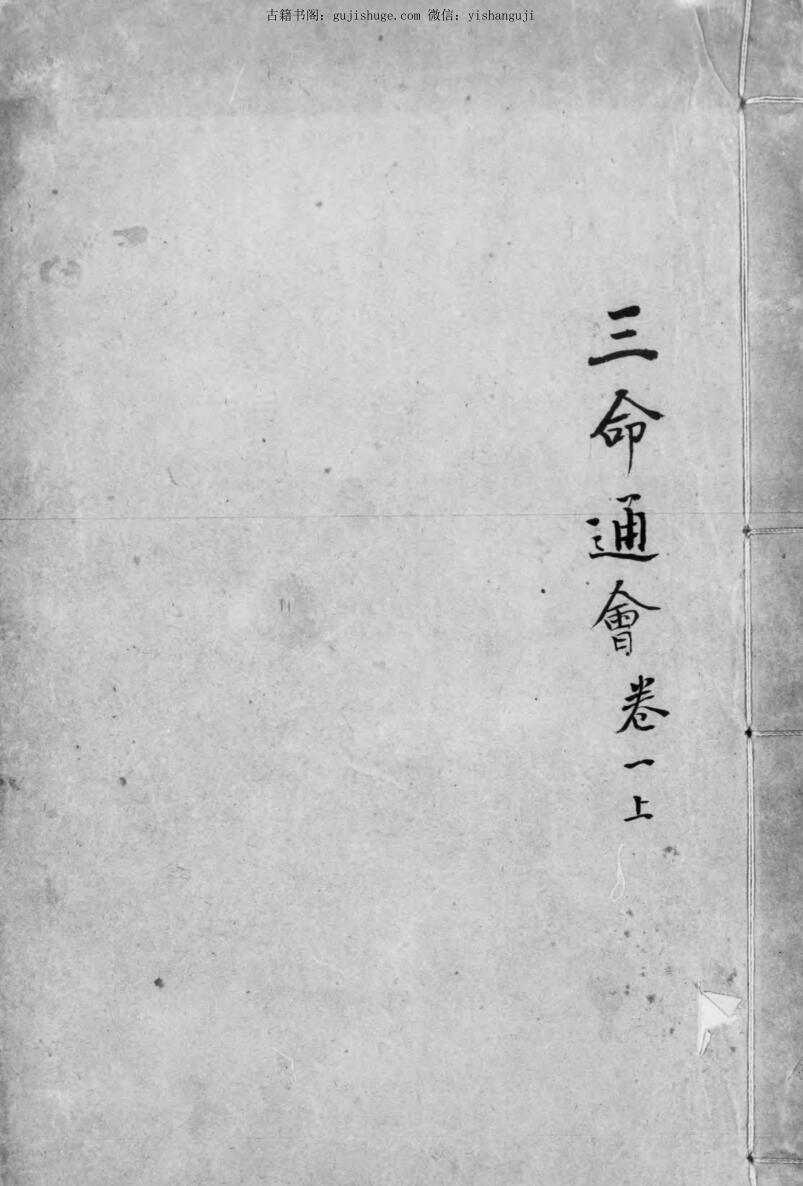 古籍书阁：gujishuge.com 微信：yishanguji
三命通會卷一上